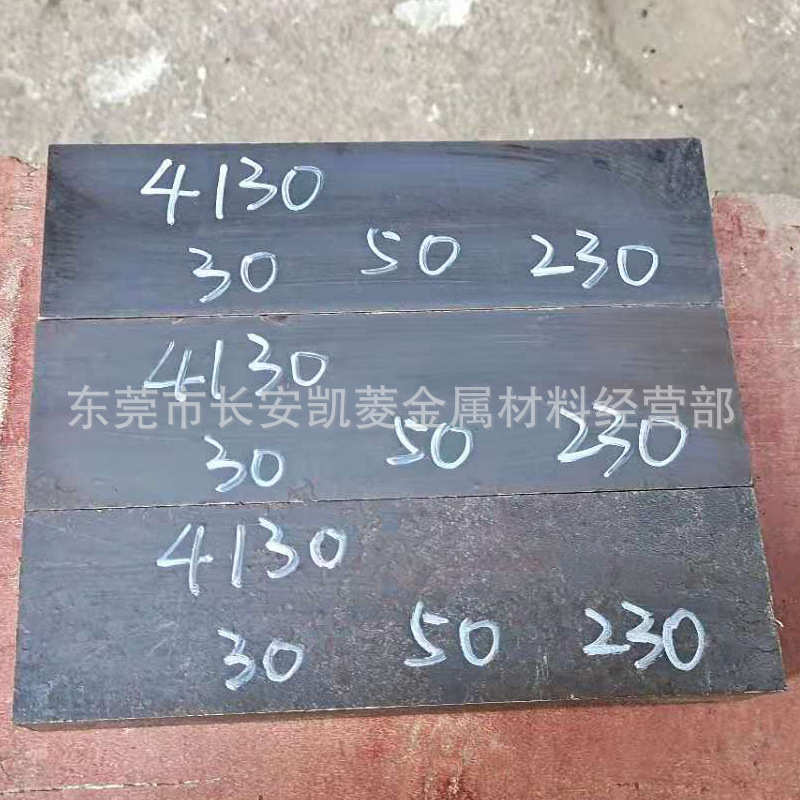 4130
30 50 230
4130
东莞市长安凯菱金属材料经营部
30 50 230
4130
30 50 230